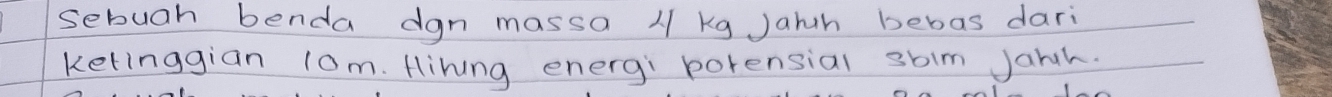 Sebuah benda dgn massa 4 kg jatuh bebas dari
ketinggian 10m. Hitung energi potensial sblm jatuh.